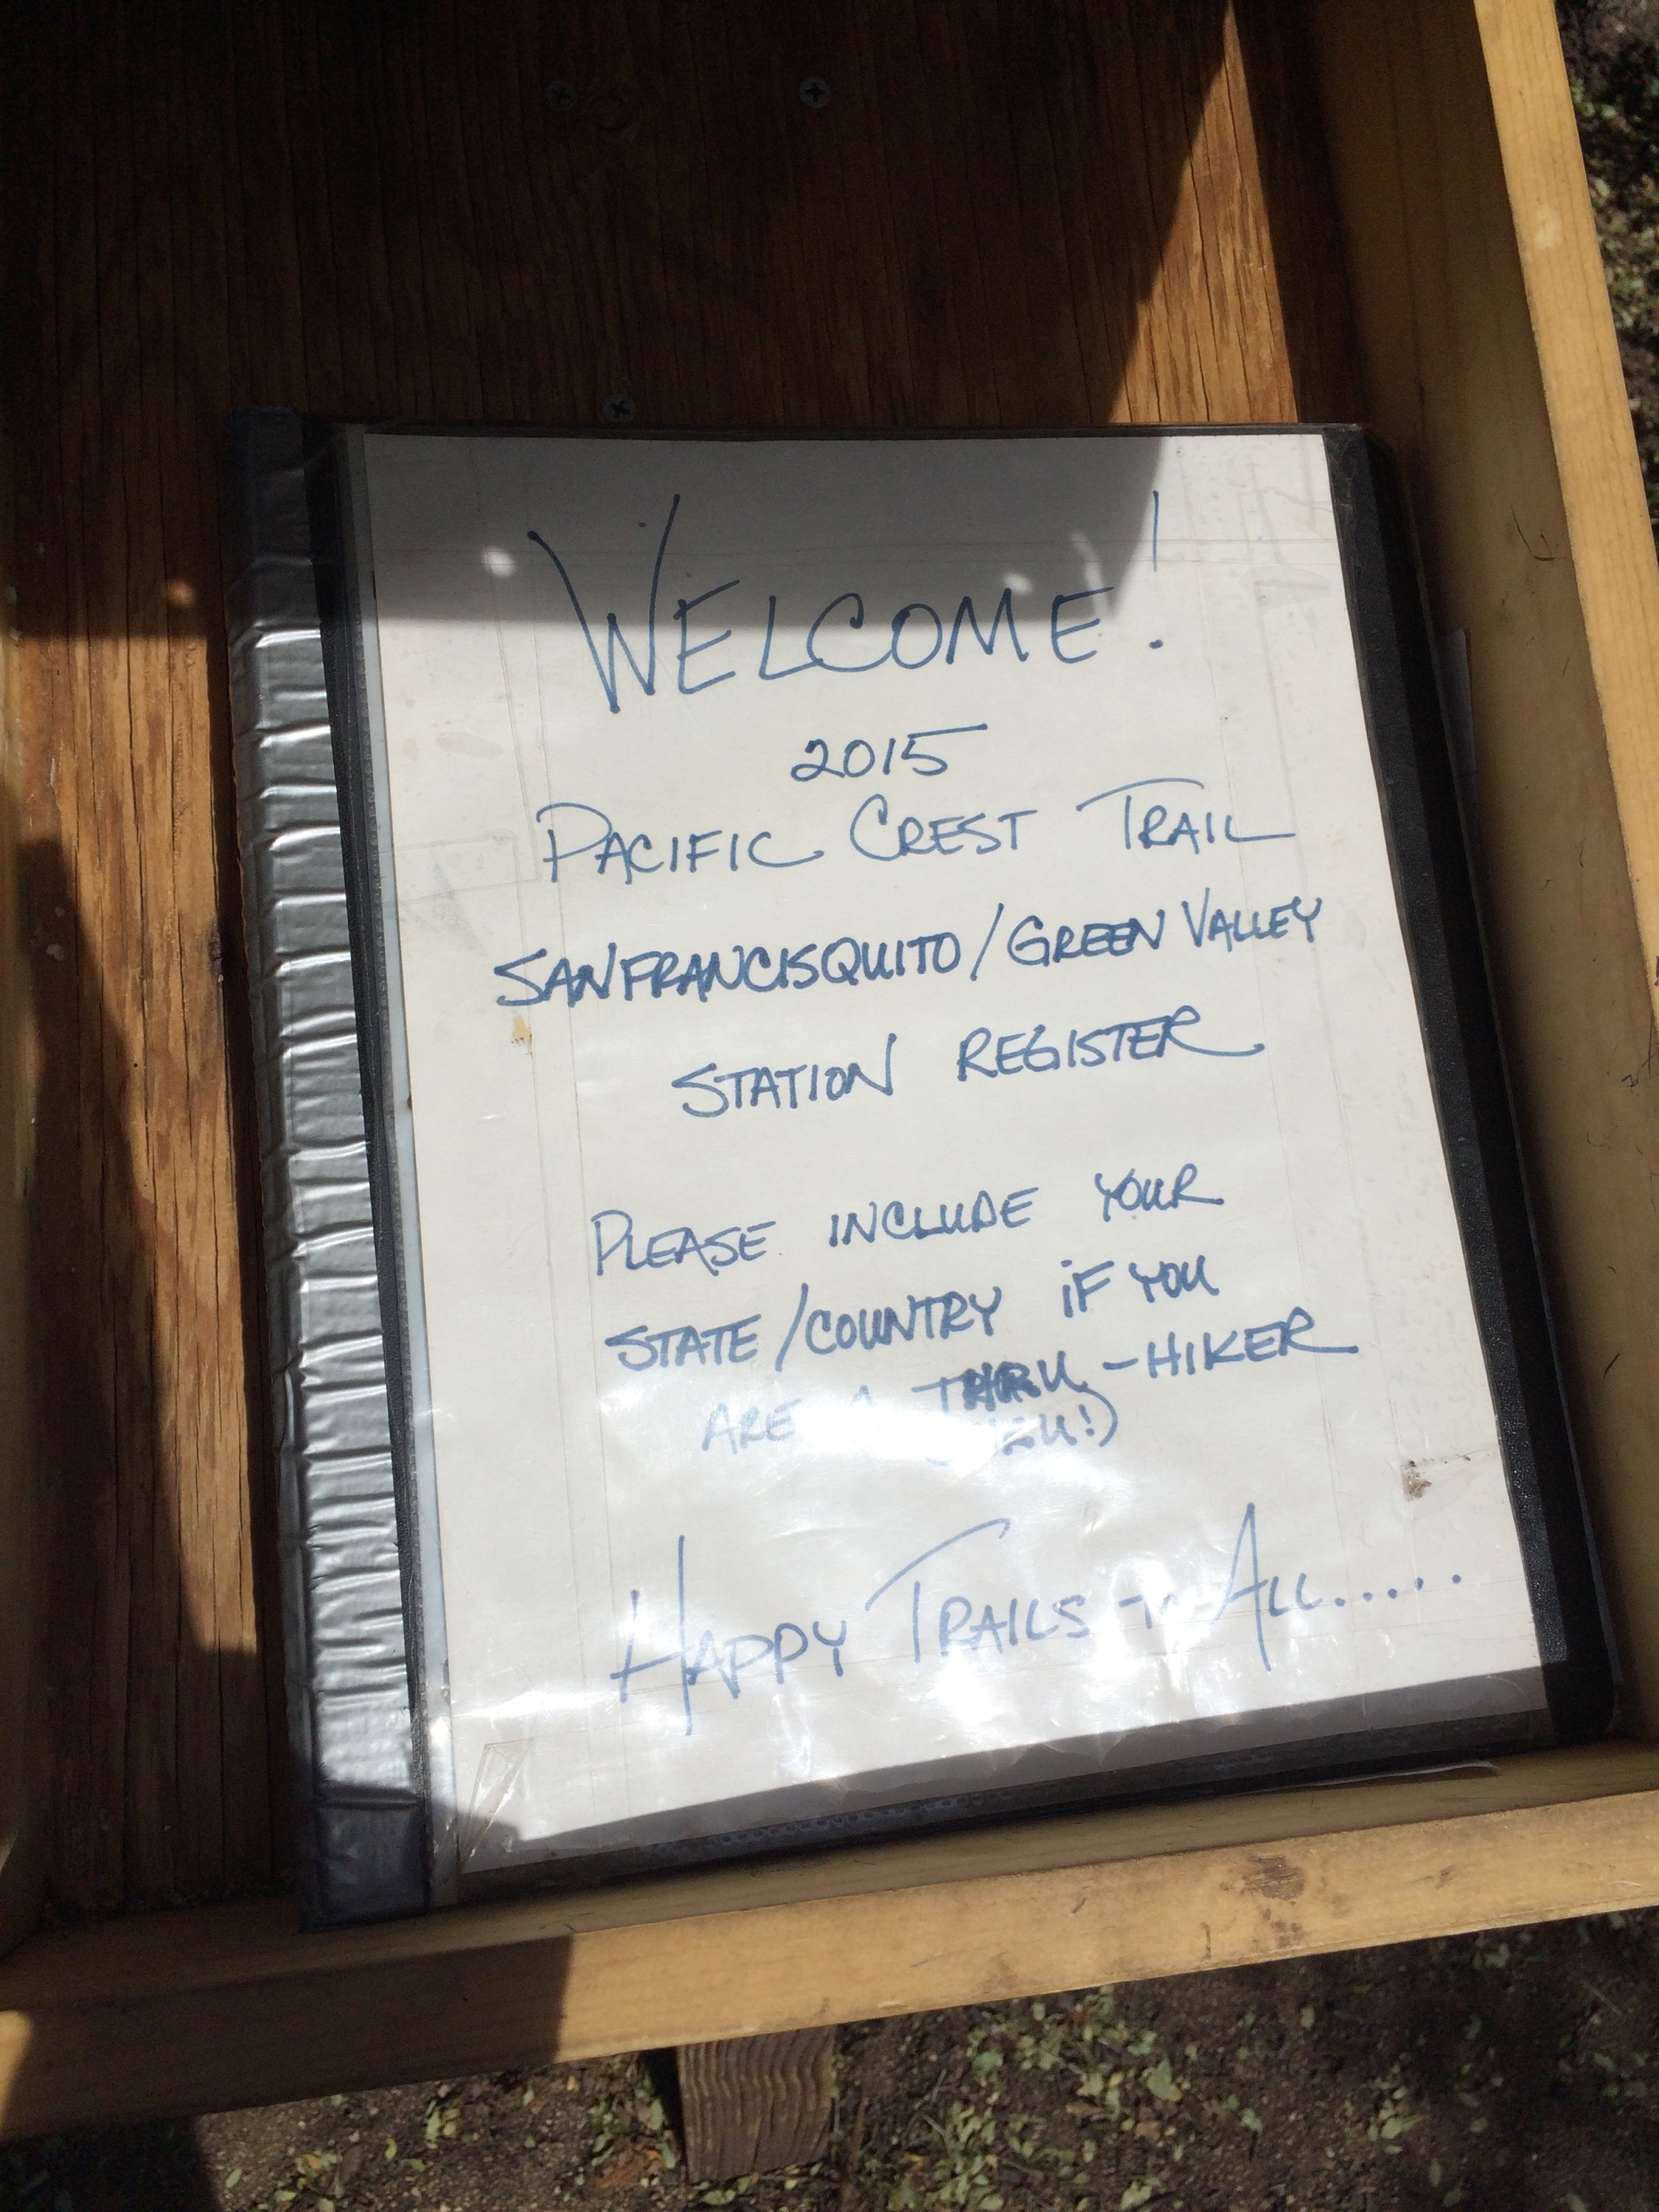 WELCOME!
2015
PACIFIC CREST TRAIL
SANFRANCISQUITO/GREEN VALLEY
STATION REGISTER
PLEASE INCLUDE YOUR
STATE/COUNTRY IF YOU
ARE A THRU-HIKER
HAPPY TRAILS TO ALL.....